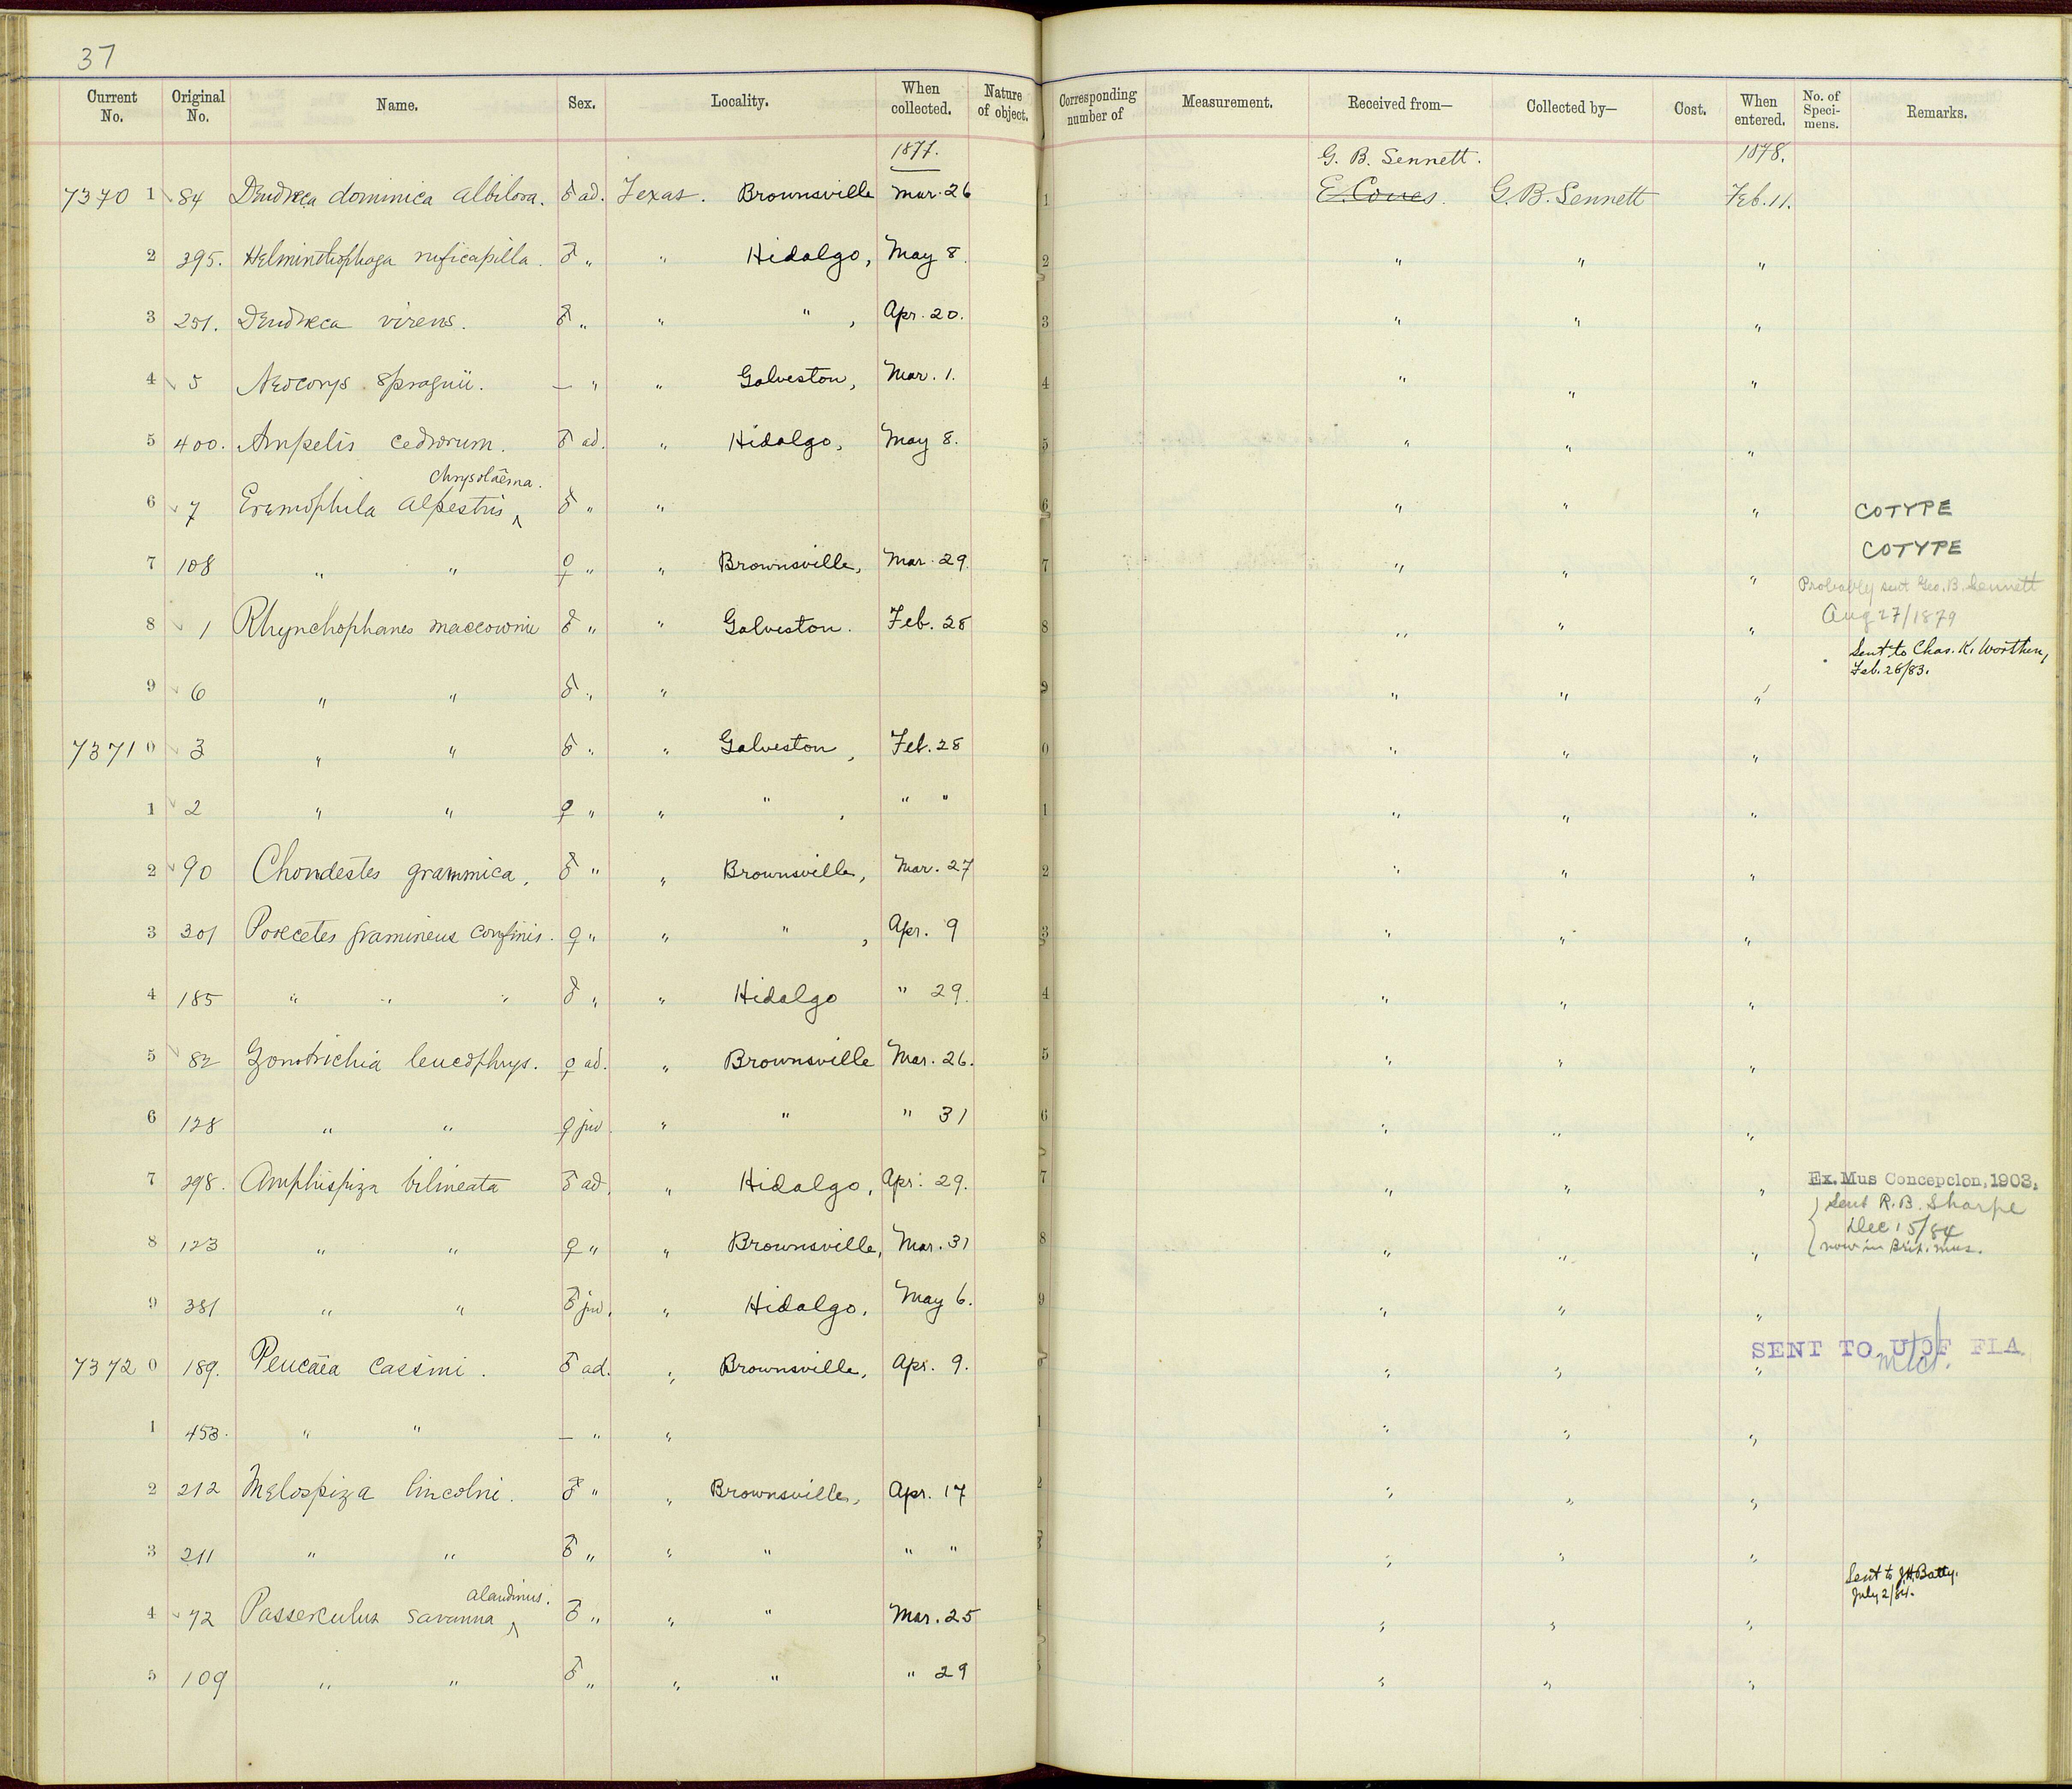 37
Current No. Original No. Name. Sex. Locality. When collected. Nature of object. Corresponding number of Measurement. Received from— Collected by— Cost. When entered. No. of Speci-mens. Remarks.
1877. G. B. Sennett. 1878.
7370 1 84 Dendrœca dominica albilora. ♂ ad. Texas. Brownsville Mar. 26 1 E. Coues. G. B. Sennett Feb. 11.
2 395. Helminthophaga ruficapilla. ♂ „ " Hidalgo, May 8. 2 " " "
3 251. Dendrœca virens. ♂ „ " " , Apr. 20. 3 " " "
4 5 Neocorys spraguii. — " " Galveston, Mar. 1. 4 " " "
5 400. Ampelis cedrorum. ♂ ad. " Hidalgo, May 8. 5 " " "
chrysolæma.
6 7 Eremophila alpestris ^ ♂ " " 6 " " " COTYPE
7 108 " " ♀ " " Brownsville, Mar. 29. 7 " " " COTYPE
Probably sent Geo. B. Sennett
Aug 27/1879
8 1 Rhynchophanes maccownii ♂ " " Galveston. Feb. 28 8 " " "
Sent to Chas. K. Worthen,
Feb. 26/83.
9 6 " " ♂ " " 9 " " "
7371 0 3 " " ♂ " " Galveston, Feb. 28 0 " " "
1 2 " " ♀ " " " , " " 1 " " "
2 90 Chondestes grammica, ♂ " " Brownsville, Mar. 27 2 " " "
3 301 Poœcetes gramineus confinis. ♀ " " " , Apr. 9 3 " " "
4 185 " " " ♂ " " Hidalgo " 29. 4 " " "
5 82 Zonotrichia leucophrys. ♀ ad. " Brownsville Mar. 26. 5 " " "
6 128 " " ♀ juv. " " " 31 6 " " "
7 298. Amphispiza bilineata ♂ ad. " Hidalgo, Apr. 29. 7 " " " Ex. Mus Concepcion, 1903.
Sent R. B. Sharpe
Dec 15/84
now in Brit. mus.
8 123 " " ♀ " " Brownsville, Mar. 31 8 " " "
9 381 " " ♂ juv. " Hidalgo, May 6. 9 " " "
7372 0 189. Peucæa cassini. ♂ ad. " Brownsville, Apr. 9. " " " SENT TO U OF FLA.
1 453. " " — " " 1 " " "
2 212 Melospiza lincolni. ♂ " " Brownsville, Apr. 17 2 " " "
3 211 " " ♂ " " " " " 3 " " "
Sent to J.H. Batty.
July 2/84.
alaudinus.
4 72 Passerculus savanna ^ ♂ " " " Mar. 25 " " "
5 109 " " ♂ " " " " 29 " " "